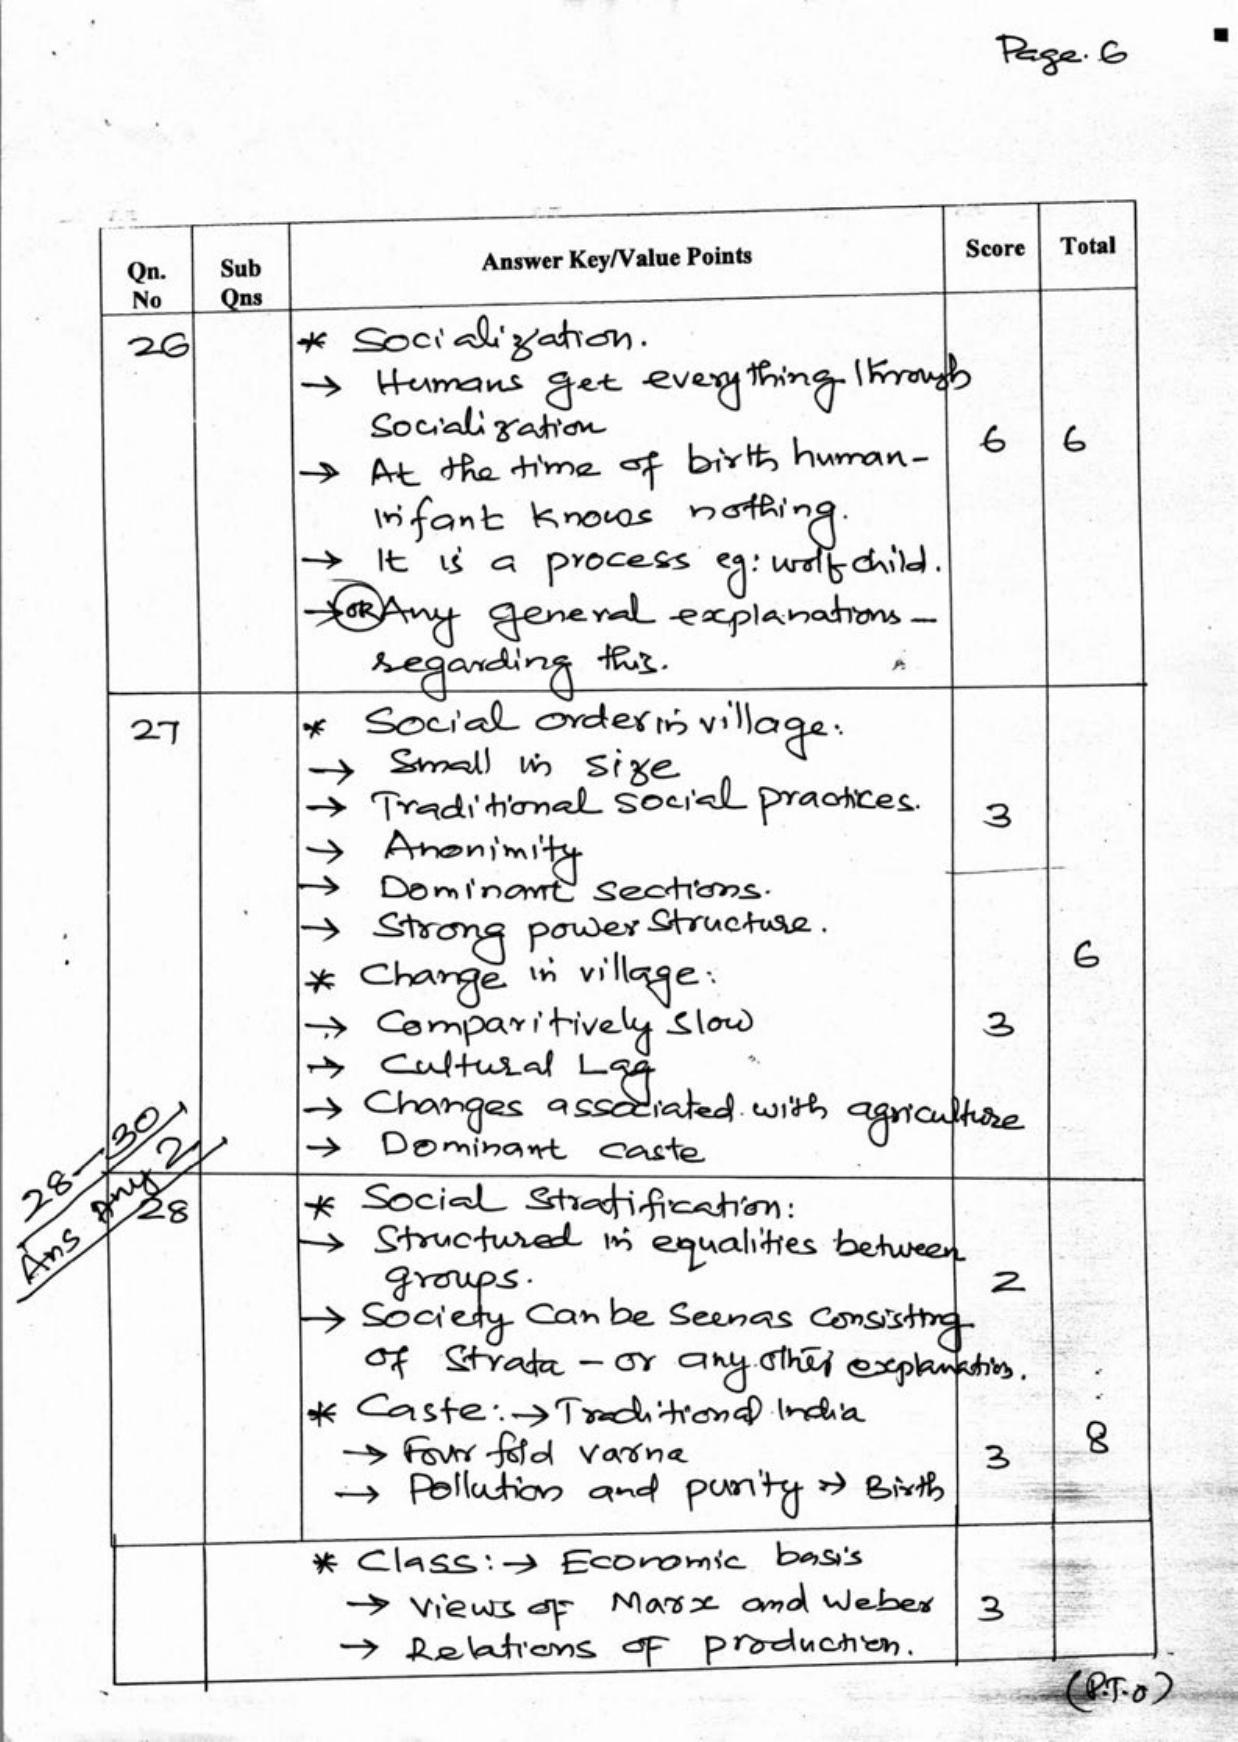 Page. 6
Qn. No
Sub Qns
Answer Key/Value Points
Score
Total
26
* Socialization.
→ Humans get everything through
Socialization
→ At the time of birth human-
infant knows nothing.
→ It is a process eg: wolf child.
→ OR Any general explanations -
regarding this.
6
6
27
* Social order in village:
→ Small in size
→ Traditional social practices.
→ Anonimity
→ Dominant sections.
→ Strong power structure.
3
* Change in village:
→ Comparitively slow
→ Cultural Lag
→ Changes associated with agriculture
→ Dominant caste
3
6
28-30
Ans Any 2
28
* Social Stratification:
→ Structured in equalities between
groups.
→ Society can be seen as consisting
of Strata - or any other explanation.
2
* Caste: → Traditional India
→ Four fold varna
→ Pollution and purity → Birth
3
8
* Class: → Economic basis
→ views of Marx and Weber
→ Relations of production.
3
(P.T.O)